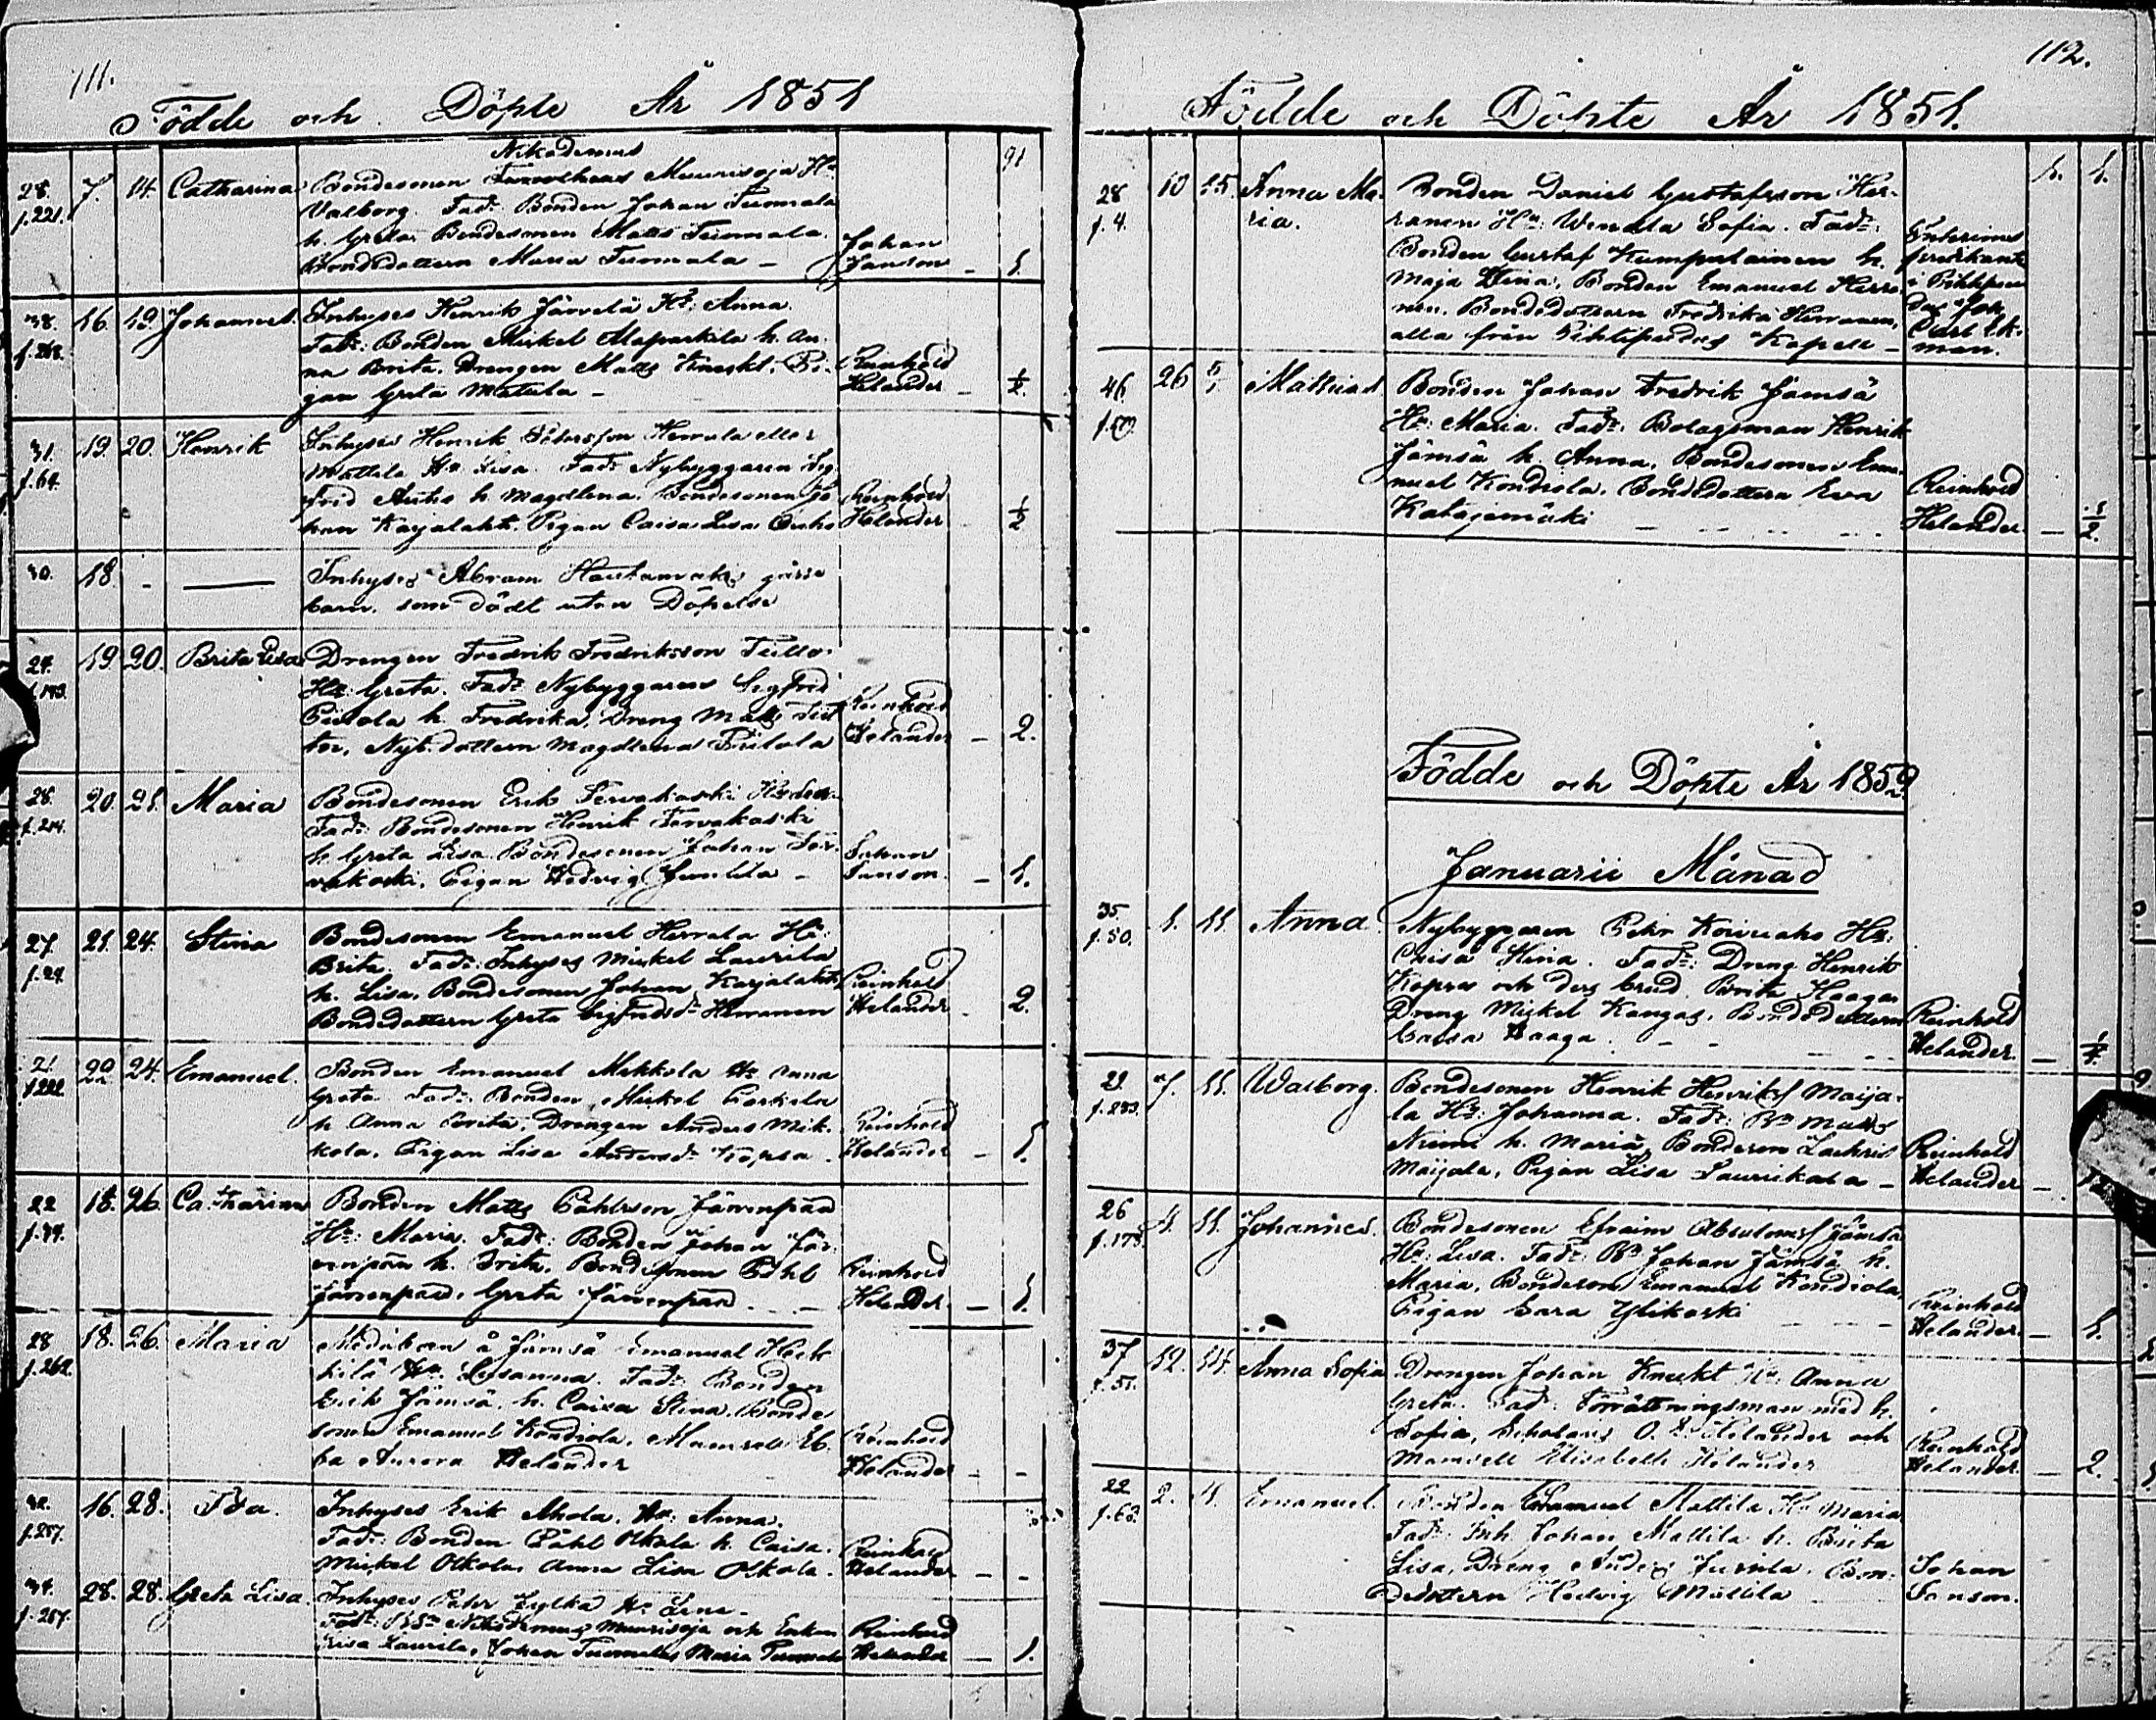 111.
Födde och Döpte År 1851
28. f.221. 7. 14. Catharina
Nikodemus
Bondesonen Muurisoja Hu
Valborg. Fadr. Bonden Johan Tuomala
h. Greta. Bondesonen Matts Tuomala.
Bondedottern Maria Tuomala –
Johan
Janson – 1.
38. f.268. 16. 19. Johannes.
Inhyses Henrik Järvelä Hu: Anna.
Fadr: Bonden Mickel h. An-
na Brita. Drengen Matts Knecht, Pi-
gan Greta Matula –
Reinhold
Helander – 1/2.
31. f.64. 19. 20. Henrik
Inhyses Henrik Petersson Herrala eller
Mattila Hu Lisa. Fadr Nybyggaren Sig-
frid Autio h. Magdlena. Bondesonen Jo-
han Karjalahti. Pigan Caisa Lisa
Reinhold
Helander – 1/2
30. 18 – —
Inhyses Abram Hautamäkis gosse
barn. som dödt utan Döpelse
24. f.143. 19 20. Brita Lisa
Drengen Fredrik Fredriksson Tullo.
Hu: Greta. Fadr Nybyggaren Sigfrid
h. Fredrika, Dreng Matts
Nyb.dottern Magdlena
Reinhold
Helander – 2.
28. f.214. 20. 21. Maria
Bondesonen Erik Tervakoski
Fadr: Bondesonen Henrik Tervakoski
h. Greta Lisa. Bondesonen Johan Ter-
vakoski. Pigan Hedvig Junttila –
Johan
Janson. – 1.
27. f.24. 21. 24. Stina
Bondesonen Emanuel Herrala Hu:
Brita. Fadr: Inhyses Mickel Laurila
h. Lisa. Bondesonen Johan Karjalahti
Bondedottern Greta Sigfridsdr Herranen
Reinhold
Helander – 2.
21. f.222. 22 24. Emanuel.
Bonden Emanuel Mikkola Hu Anna
Greta Fadr: Bonden Mickel Parkila
h Anna Brita, Drengen Anders Mik-
kola. Pigan Lisa Andersdr Kopsa
Reinhold
Helander – 1.
22 f.44. 18. 26. Catharina
Bonden Matts Påhlsson Järvenpää
Hu: Maria. Fadr: Bonden Johan Jär-
venpää h. Brita. Bondesonen Påhl
Järvenpää. Greta Järvenpää. . –
Reinhold
Helander. – 1.
28 f.262. 18. 26. Maria
Medåboen å Jämsä Emanuel Heik-
kilä Hu. Lisanna. Fadr: Bonden
Erik Jämsä. h. Caisa Stina. Bonde
sonen Emanuel Kondiola. Mamsell Eb-
ba Aurora Helander
Reinhold
Helander – –
32. f.257. 16. 28. Ida.
Inhyses Erik Ahola. Hu: Anna.
Fadr: Bonden Påhl Olkola h. Caisa.
Mickel Olkola, Anna Lisa Olkola.
Reinhold
Helander – –
34. f.257. 28. 28. Greta Lisa.
Inhyses Petter Jylkä Hu Lena.
Fadr: BSn Nikodemus Muurisoja och Enkan
Lisa Laurila. Johan Tuomala, Maria Tuomala
Reinhold
Helander – 1.
112.
Födde och Döpte År 1851.
28 f.4. 10 25. Anna Ma-
ria.
Bonden Daniel Gustafsson Her-
ranen Hu: Wendla Sofia. Fadr:
Bonden Gustaf Kumpulainen h.
Maja Stina, Bonden Emanuel Herra-
nen. Bondedottern Fredrika Herranen,
alla från Pihtipudas Kapell –
Interims
predikant
i Pihtipu-
das Joh.
Carl Ek-
man.
1. 1.
46. 26 6/1 Mathias
Bonden Johan Fredrik Jämsä
Hu: Maria. Fadr. Bolagsman Henrik
Jämsä h. Anna, Bondesonen Ema-
nuel Kondiola. Bondedottern Eva
Katajamäki – – – –
Reinhold
Helander. – 1/2.
Födde och Döpte År 1852
Januarii Månad
35. f.50. 1. 11. Anna
Nybyggaren Petr Koivuaho Hu:
Caisa Stina. Fadr: Dreng Henrik
Kopsa och dess brud Brita Haaga
Dreng Mickel Kangas, Bondedottern
Caisa Haaga. –
Reinhold
Helander. –
21. f.233. 7. 11. Walborg.
Bondesonen Henrik Henriks Maija-
la Hu: Johanna. Fadr: Bn Matts
Niemi h. Maria, Bondeson Zachris
Maijala, Pigan Lisa Saunikala –
Reinhold
Helander –
26 f.173. 4. 11. Johannes.
Bondesonen Efraim Absalons Jämsä
Hu: Lisa. Fadr: Bn Johan Jämsä h.
Maria, Bondeson Emanuel Kondiola,
Pigan Sara Ylikoski
Reinhold
Helander. – 1.
37 f.51. 12. 14. Anna Sofia
Drengen Johan Knekt Hu: Anna
Greta. Fad: Förrättningsman med h.
Sofia, Scholaris O. E. Helander och
Mamsell Elisabeth Helander
Reinhold
Helander. – 2.
22 f.63. 2. 4. Emanuel.
Bonden Emanuel Mattila Hu Maria
Fadr: Inh. Johan Mattila h. Brita
Lisa, Dreng Anders Juntila. Bon-
dedottern Hedvig Mattila
Johan
Janson.